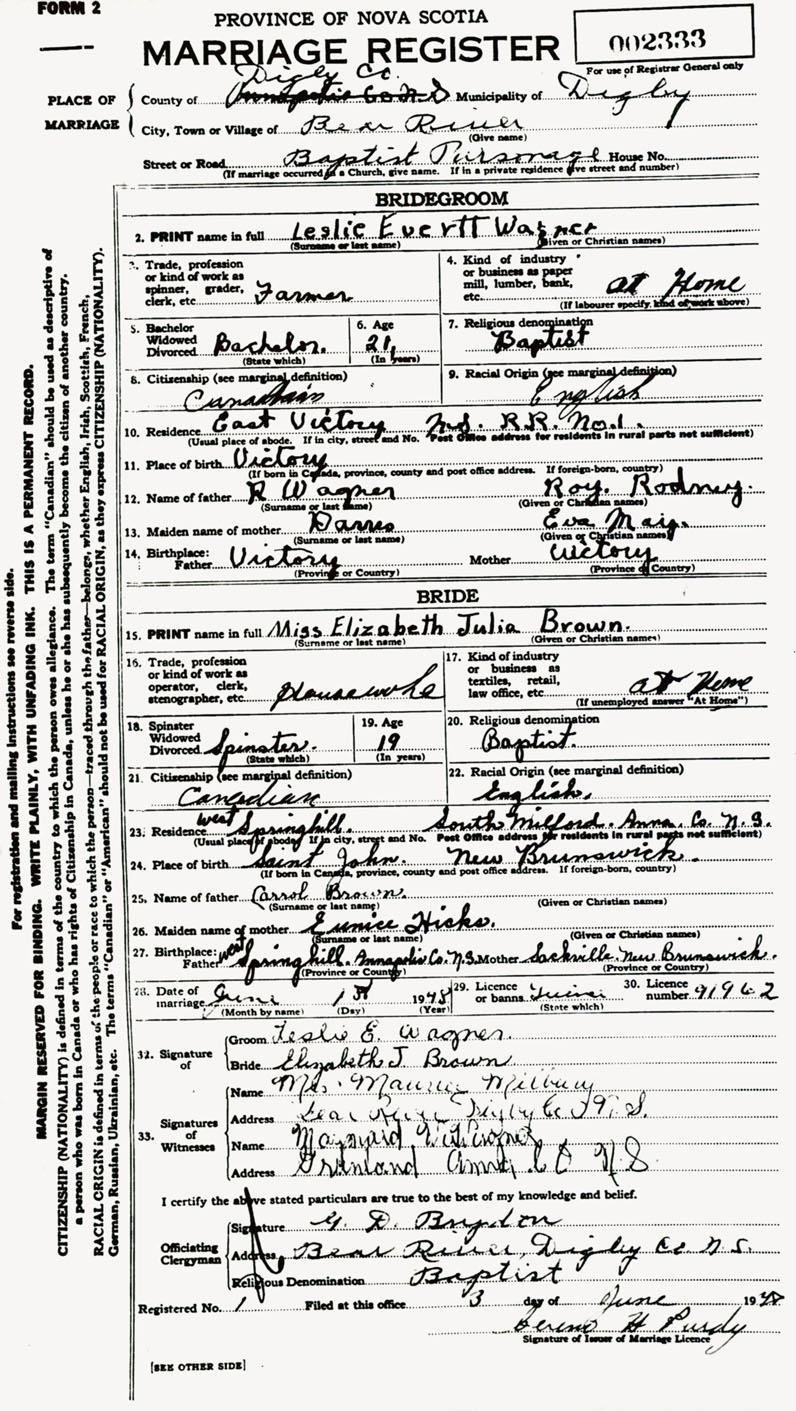 FORM 2
PROVINCE OF NOVA SCOTIA
MARRIAGE REGISTER
002333
For use of Registrar General only
PLACE OF MARRIAGE
Digby Co.
County of Annapolis Co N S Municipality of Digby
City, Town or Village of Bear River
(Give name)
Street or Road Baptist Parsonage House No.
(If marriage occurred in a Church, give name. If in a private residence give street and number)
BRIDEGROOM
2. PRINT name in full Leslie Evertt Wagner
(Surname or last name) (Given or Christian names)
3. Trade, profession or kind of work as spinner, grader, clerk, etc. Farmer
4. Kind of industry or business as paper mill, lumber, bank, etc. at Home
(If labourer specify, kind of work above)
5. Bachelor Widowed Divorced Bachelor.
(State which)
6. Age 21,
(In years)
7. Religious denomination Baptist
8. Citizenship (see marginal definition) Canadian
9. Racial Origin (see marginal definition) English
10. Residence East Victory R.R. No.1.
(Usual place of abode. If in city, street and No. Post Office address for residents in rural parts not sufficient)
11. Place of birth Victory
(If born in Canada, province, county and post office address. If foreign-born, country)
12. Name of father R Wagner Roy. Rodney.
(Surname or last name) (Given or Christian names)
13. Maiden name of mother Eva May.
(Surname or last name) (Given or Christian names)
14. Birthplace: Father Victory Mother Victory
(Province or Country) (Province or Country)
BRIDE
15. PRINT name in full Miss Elizabeth Julia Brown.
(Surname or last name) (Given or Christian names)
16. Trade, profession or kind of work as operator, clerk, stenographer, etc. Housework
17. Kind of industry or business as textiles, retail, law office, etc. at Home
(If unemployed answer "At Home")
18. Spinster Widowed Divorced Spinster.
(State which)
19. Age 19
(In years)
20. Religious denomination Baptist.
21. Citizenship (see marginal definition) Canadian
22. Racial Origin (see marginal definition) English.
23. Residence West Springhill. South Milford. Anna. Co. N. S.
(Usual place of abode. If in city, street and No. Post Office address for residents in rural parts not sufficient)
24. Place of birth Saint John. New Brunswick.
(If born in Canada, province, county and post office address. If foreign-born, country)
25. Name of father Carrol Brown.
(Surname or last name) (Given or Christian names)
26. Maiden name of mother Eunice Hicks.
(Surname or last name) (Given or Christian names)
27. Birthplace: Father West Springhill. Annapolis Co. N.S. Mother Sackville. New Brunswick.
(Province or Country) (Province or Country)
28. Date of marriage June 1st 1948
(Month by name) (Day) (Year)
29. Licence or banns
(State which)
30. Licence number 91962
32. Signature of
Groom Leslie E. Wagner.
Bride Elizabeth J. Brown
33. Signatures of Witnesses
Name Mrs. Maurice Milbury
Address Bear River Digby Co N. S.
Name Maynard
Address Co N S
I certify the above stated particulars are true to the best of my knowledge and belief.
Officiating Clergyman
Signature G. D. Brydon
Address, Bear River, Digby Co N. S.
Religious Denomination Baptist
Registered No. 1 Filed at this office 3 day of June 1948
H Purdy
Signature of Issuer of Marriage Licence
[SEE OTHER SIDE]
For registration and mailing instructions see reverse side.
MARGIN RESERVED FOR BINDING. WRITE PLAINLY, WITH UNFADING INK. THIS IS A PERMANENT RECORD.
CITIZENSHIP (NATIONALITY) is defined in terms of the country to which the person owes allegiance. The term "Canadian" should be used as descriptive of
a person who was born in Canada or who has rights of Citizenship in Canada, unless he or she has subsequently become the citizen of another country.
RACIAL ORIGIN is defined in terms of the people or race to which the person—traced through the father—belongs, whether English, Irish, Scottish, French,
German, Russian, Ukrainian, etc. The terms "Canadian" or "American" should not be used for RACIAL ORIGIN, as they express CITIZENSHIP (NATIONALITY).